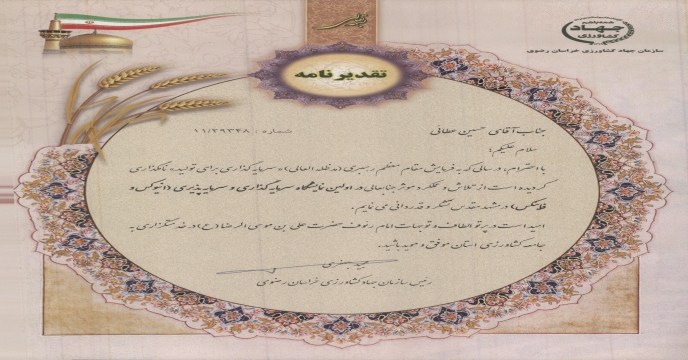 همه با هم
جهاد
کشاورزی
سازمان جهاد کشاورزی خراسان رضوی
تقدیرنامه
جناب آقای حسین عطائی
شماره : ۱۱/۲۹۳۴۸
سلام علیکم؛
با احترام، در سالی که به فرمایش مقام معظم رهبری (مدظله العالی) «سرمایه گذاری برای تولید» نامگذاری
گردیده است از تلاش و عملکرد موثر جنابعالی در اولین نمایشگاه سرمایه گذاری و سرمایه پذیری (اینوکس و
در مشهد مقدس تشکر و قدردانی می نمایم.
امید است در پرتو الطاف و توجهات امام رئوف حضرت علی بن موسی الرضا (ع) در خدمتگزاری به
جامعه کشاورزی استان موفق و موید باشید.
رئیس سازمان جهاد کشاورزی خراسان رضوی